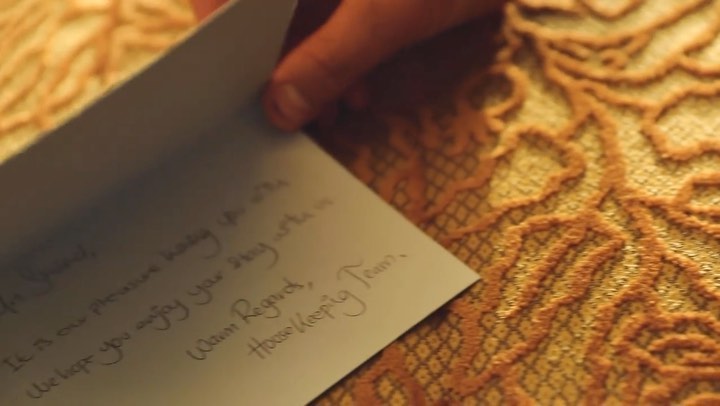 It is our pleasure having you with
We hope you enjoy your stay with us
Warm Regards,
HouseKeeping Team.